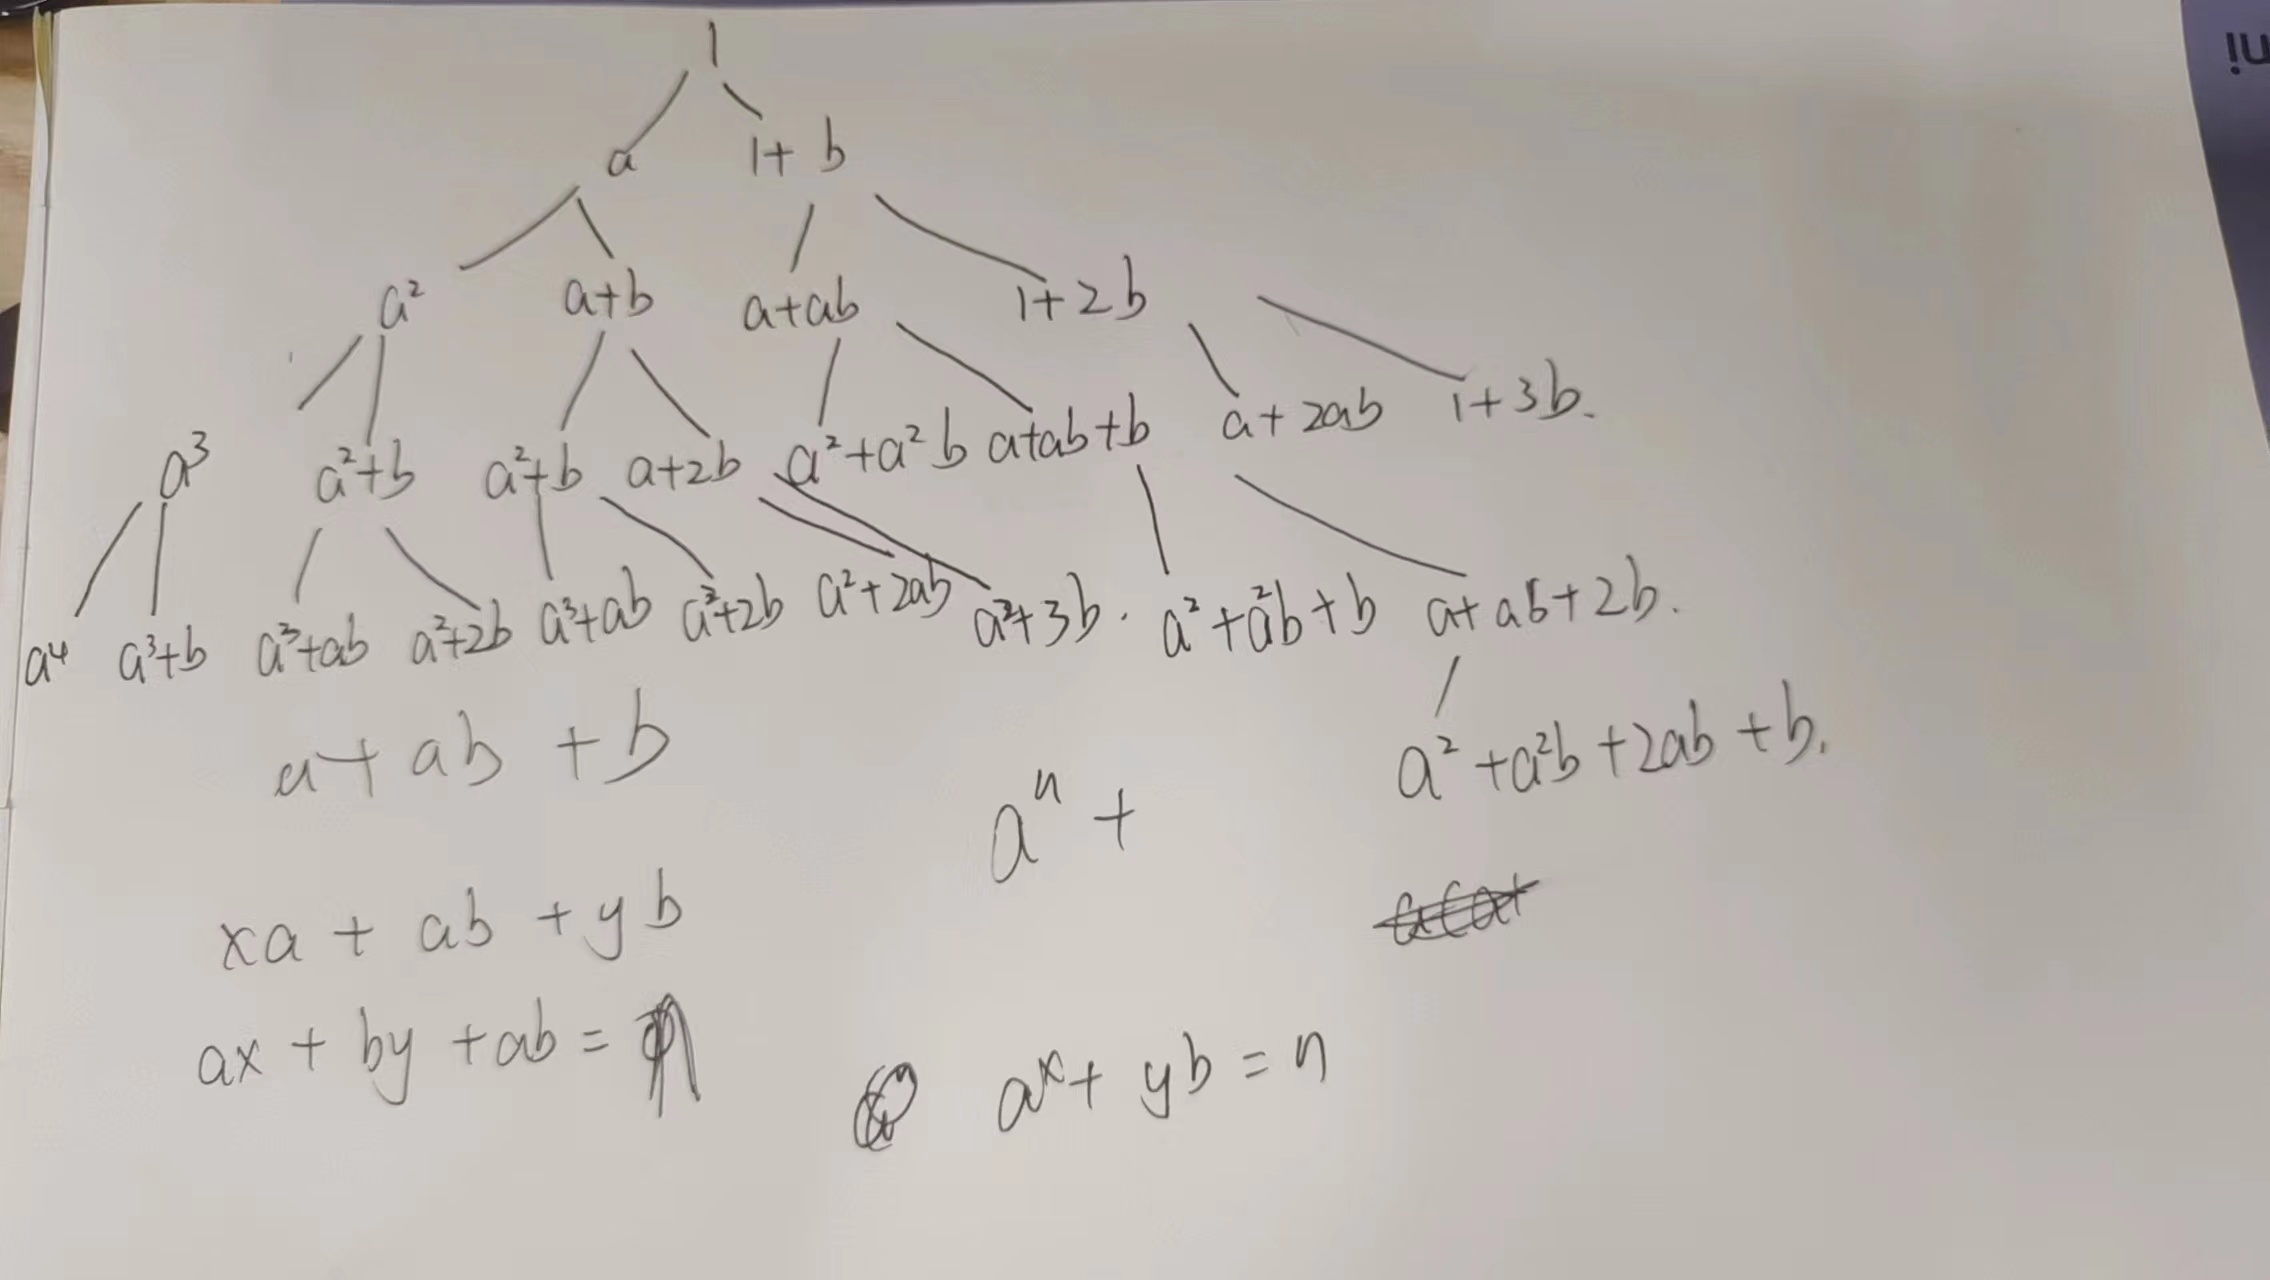 1
a 1+ b
a² a+b a+ab 1+2b
a³ a²+b a²+b a+2b a²+a²b a+ab+b a+2ab 1+3b.
a⁴ a³+b a³+ab a²+2b a³+ab a²+2b a²+2ab a²+3b. a²+a²b+b a+ab+2b.
a+ab+b
aⁿ+
a²+a²b+2ab+b.
xa+ab+yb
ax+by+ab=
aˣ+yb=n